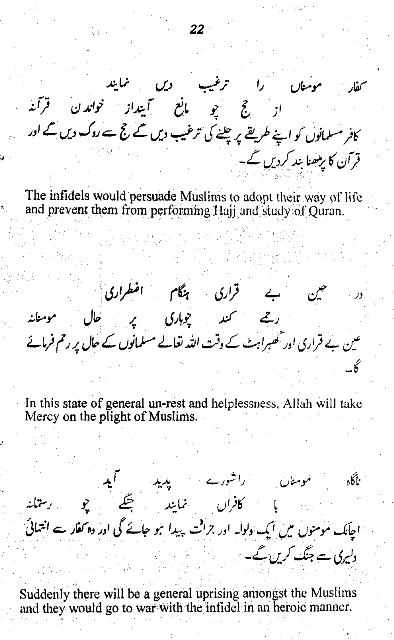 22
کفار مومناں را ترغیب دیں نمایند
از حج چو مانع آیند از خواندن قرآنہ
کافر مسلمانوں کو اپنے طریقے پر چلنے کی ترغیب دیں گے حج سے روک دیں گے اور
قرآن کا پڑھنا بند کردیں گے۔
The infidels would persuade Muslims to adopt their way of life
and prevent them from performing Hajj and study of Quran.
در حین بے قراری ہنگام اضطراری
رحمے کند چوباری بر حال مومنانہ
عین بے قراری اور گھبراہٹ کے وقت اللہ تعالے مسلمانوں کے حال پر رحم فرمائے
گا۔
In this state of general un-rest and helplessness, Allah will take
Mercy on the plight of Muslims.
ناگاہ مومناں راشورے پدید آید
با کافراں نمایند جنگے چو رستمانہ
اچانک مومنوں میں ایک ولولہ اور جرات پیدا ہو جائے گی اور وہ کفار سے انتہائی
دلیری سے جنگ کریں گے۔
Suddenly there will be a general uprising amongst the Muslims
and they would go to war with the infidel in an heroic manner.